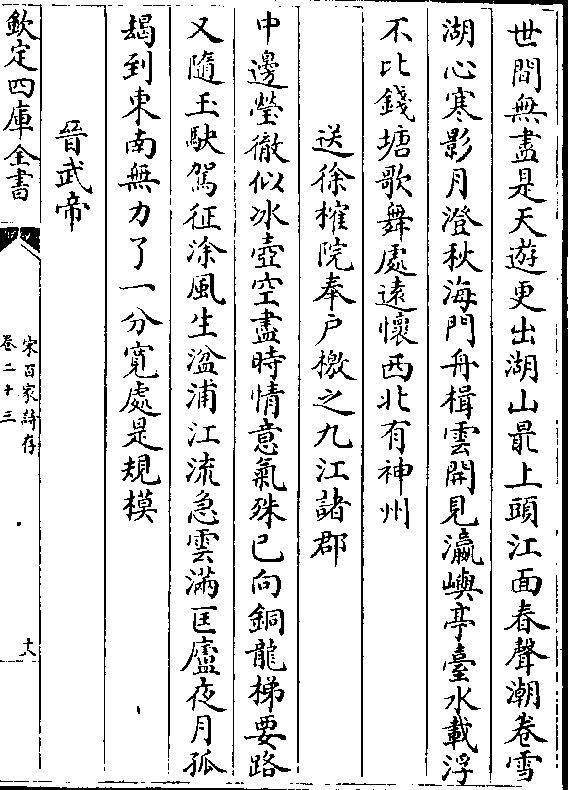 世間無盡是天遊更出湖山最上頭江面春聲潮卷雪
湖心寒影月澄秋海門舟楫雲開見瀛嶼亭臺水載浮
不比錢塘歌舞處遠懷西北有神州
送徐榷院奉户檄之九江諸郡
中邊瑩徹似冰壺空盡時情意氣殊已向銅龍梯要路
又隨玉駃駕征涂風生湓浦江流急雲滿匡廬夜月孤
朅到東南無力了一分寛處是規模
晉武帝
欽定四庫全書
宋百家詩存
卷二十三
十八